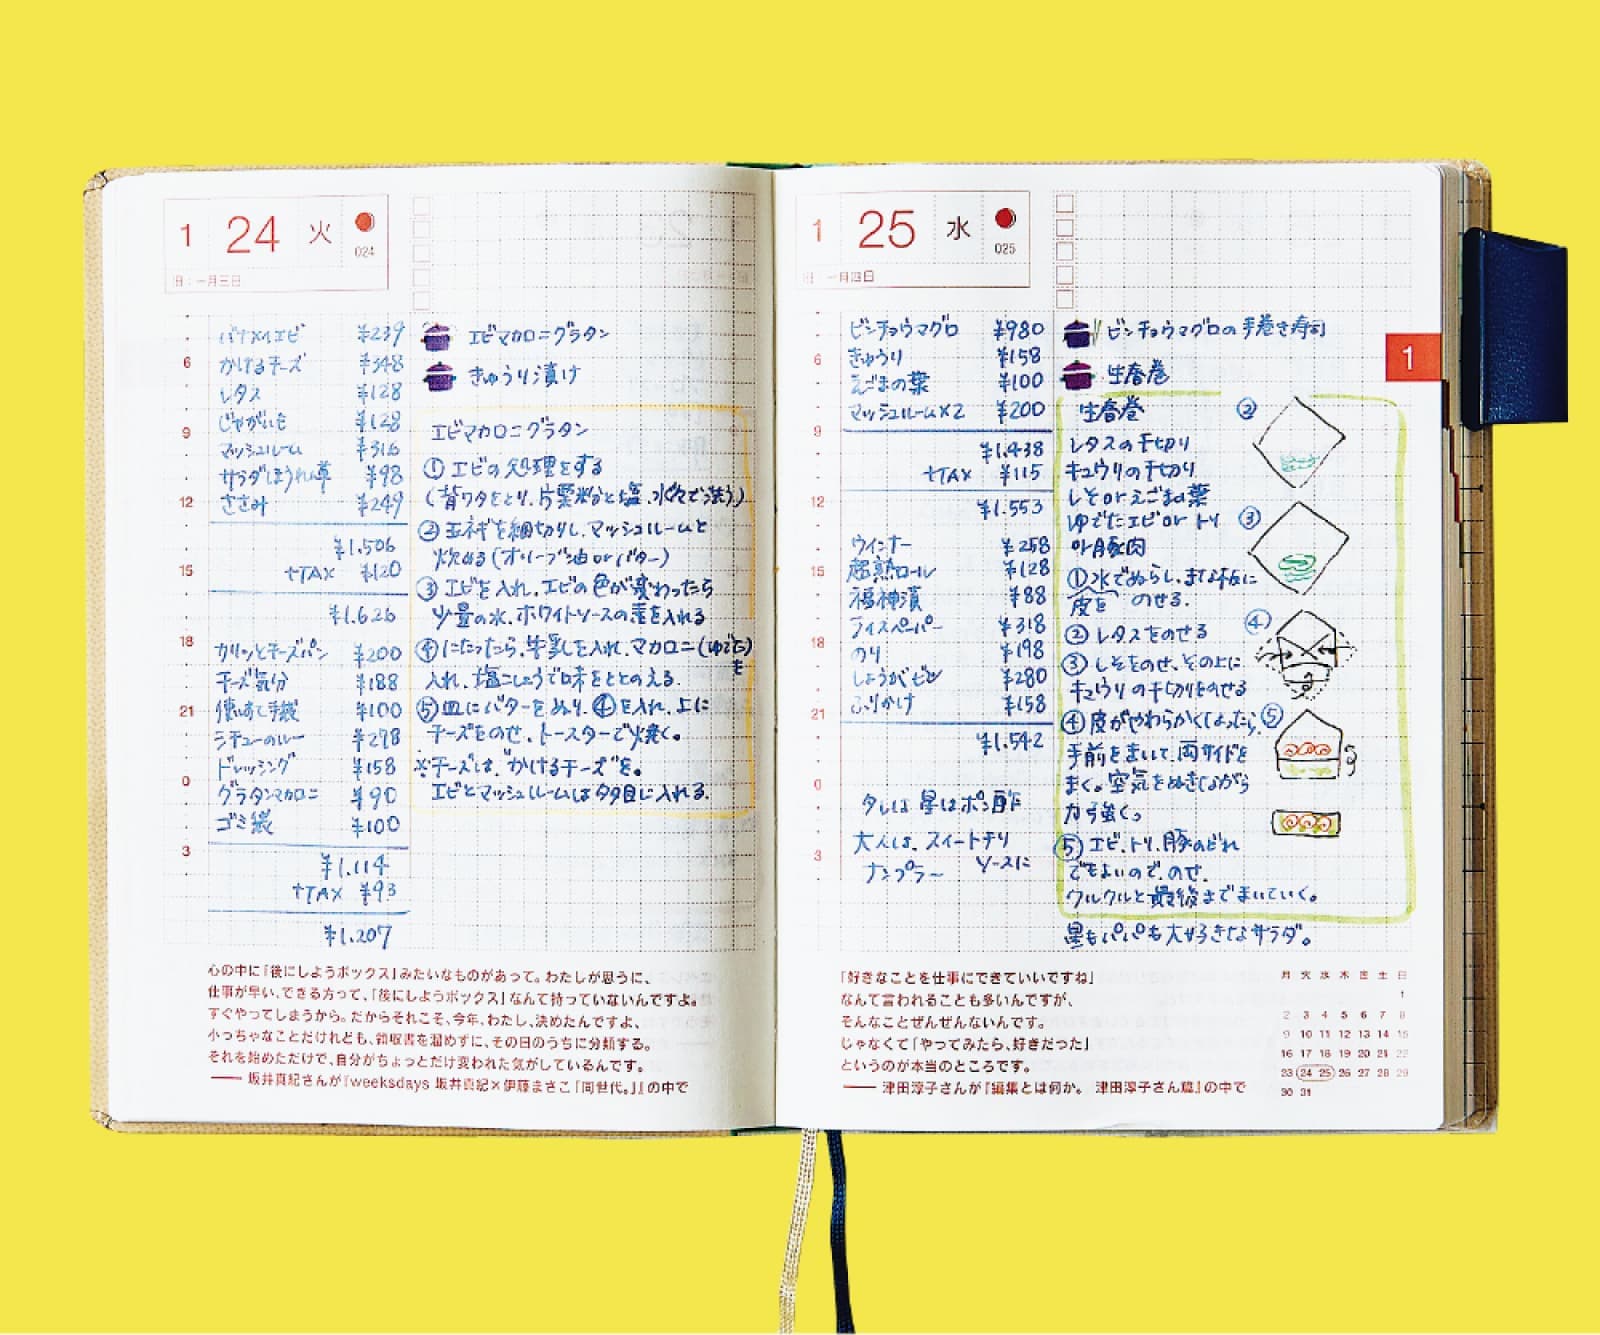 1 24 火
024
旧:一月三日
バナメイエビ ¥239
6 かけるチーズ ¥348
レタス ¥128
じゃがいも ¥128
9
マッシュルーム ¥316
サラダほうれん草 ¥98
12 ささみ ¥249
¥1.506
15 +TAX ¥120
¥1.626
18 カリッとチーズパン ¥200
チーズ気分 ¥188
21 使いすて手袋 ¥100
シチューのルー ¥278
ドレッシング ¥158
0 グラタンマカロニ ¥90
ゴミ袋 ¥100
3 ¥1.114
+TAX ¥93
¥1.207
エビマカロニグラタン
きゅうり漬け
エビマカロニグラタン
①エビの処理をする
(背ワタをとり、片栗粉と塩、水で洗う)
②玉ネギを細切りし、マッシュルームと
炒める(オリーブ油orバター)
③エビを入れ、エビの色が変わったら
少量の水、ホワイトソースの素を入れる
④にたったら、牛乳を入れ、マカロニ(ゆでた)を
入れ、塩こしょうで味をととのえる。
⑤皿にバターをぬり、④を入れ、上に
チーズをのせ、トースターで焼く。
※チーズは、"かけるチーズ"を。
エビとマッシュルームは多目に入れる。
心の中に「後にしようボックス」みたいなものがあって。わたしが思うに、
仕事が早い、できる方って、「後にしようボックス」なんて持っていないんですよ。
すぐやってしまうから。だからそれこそ、今年、わたし、決めたんですよ、
小っちゃなことだけれども、領収書を溜めずに、その日のうちに分類する。
それを始めただけで、自分がちょっとだけ変われた気がしているんです。
—— 坂井真紀さんが『weeksdays 坂井真紀×伊藤まさこ「同世代。」』の中で
1 25 水
025
旧:一月四日
ビンチョウマグロ ¥980
6 きゅうり ¥158
えごまの葉 ¥100
マッシュルーム×2 ¥200
9
¥1.438
+TAX ¥115
12 ¥1.553
ウインナー ¥258
15 超熟ロール ¥128
福神漬 ¥88
ライスペーパー ¥318
18 のり ¥198
¥280
21 ふりかけ ¥158
¥1.542
0
タレは 星はポン酢
大人は、スイートチリ
ソースに
3 ナンプラー
ビンチョウマグロの手巻き寿司
生春巻
生春巻
レタスの千切り
キュウリの千切り
しそorえごまの葉
ゆでたエビorトリ
or豚肉
①水でぬらし、まな板に
皮を のせる。
②レタスをのせる
③しそをのせ、その上に
キュウリの千切りをのせる
④皮がやわらかくなったら、
手前をまいて、両サイドを
まく。空気をぬきながら
力強く。
⑤エビ、トリ、豚のどれ
でもよいので、のせ、
クルクルと最後までまいていく。
星もパパも大好きなサラダ。
②
③
④
⑤
1
「好きなことを仕事にできていいですね」
なんて言われることも多いんですが、
そんなことぜんぜんないんです。
じゃなくて「やってみたら、好きだった」
というのが本当のところです。
—— 津田淳子さんが『編集とは何か。 津田淳子さん篇』の中で
月 火 水 木 金 土 日
1
2 3 4 5 6 7 8
9 10 11 12 13 14 15
16 17 18 19 20 21 22
23 24 25 26 27 28 29
30 31